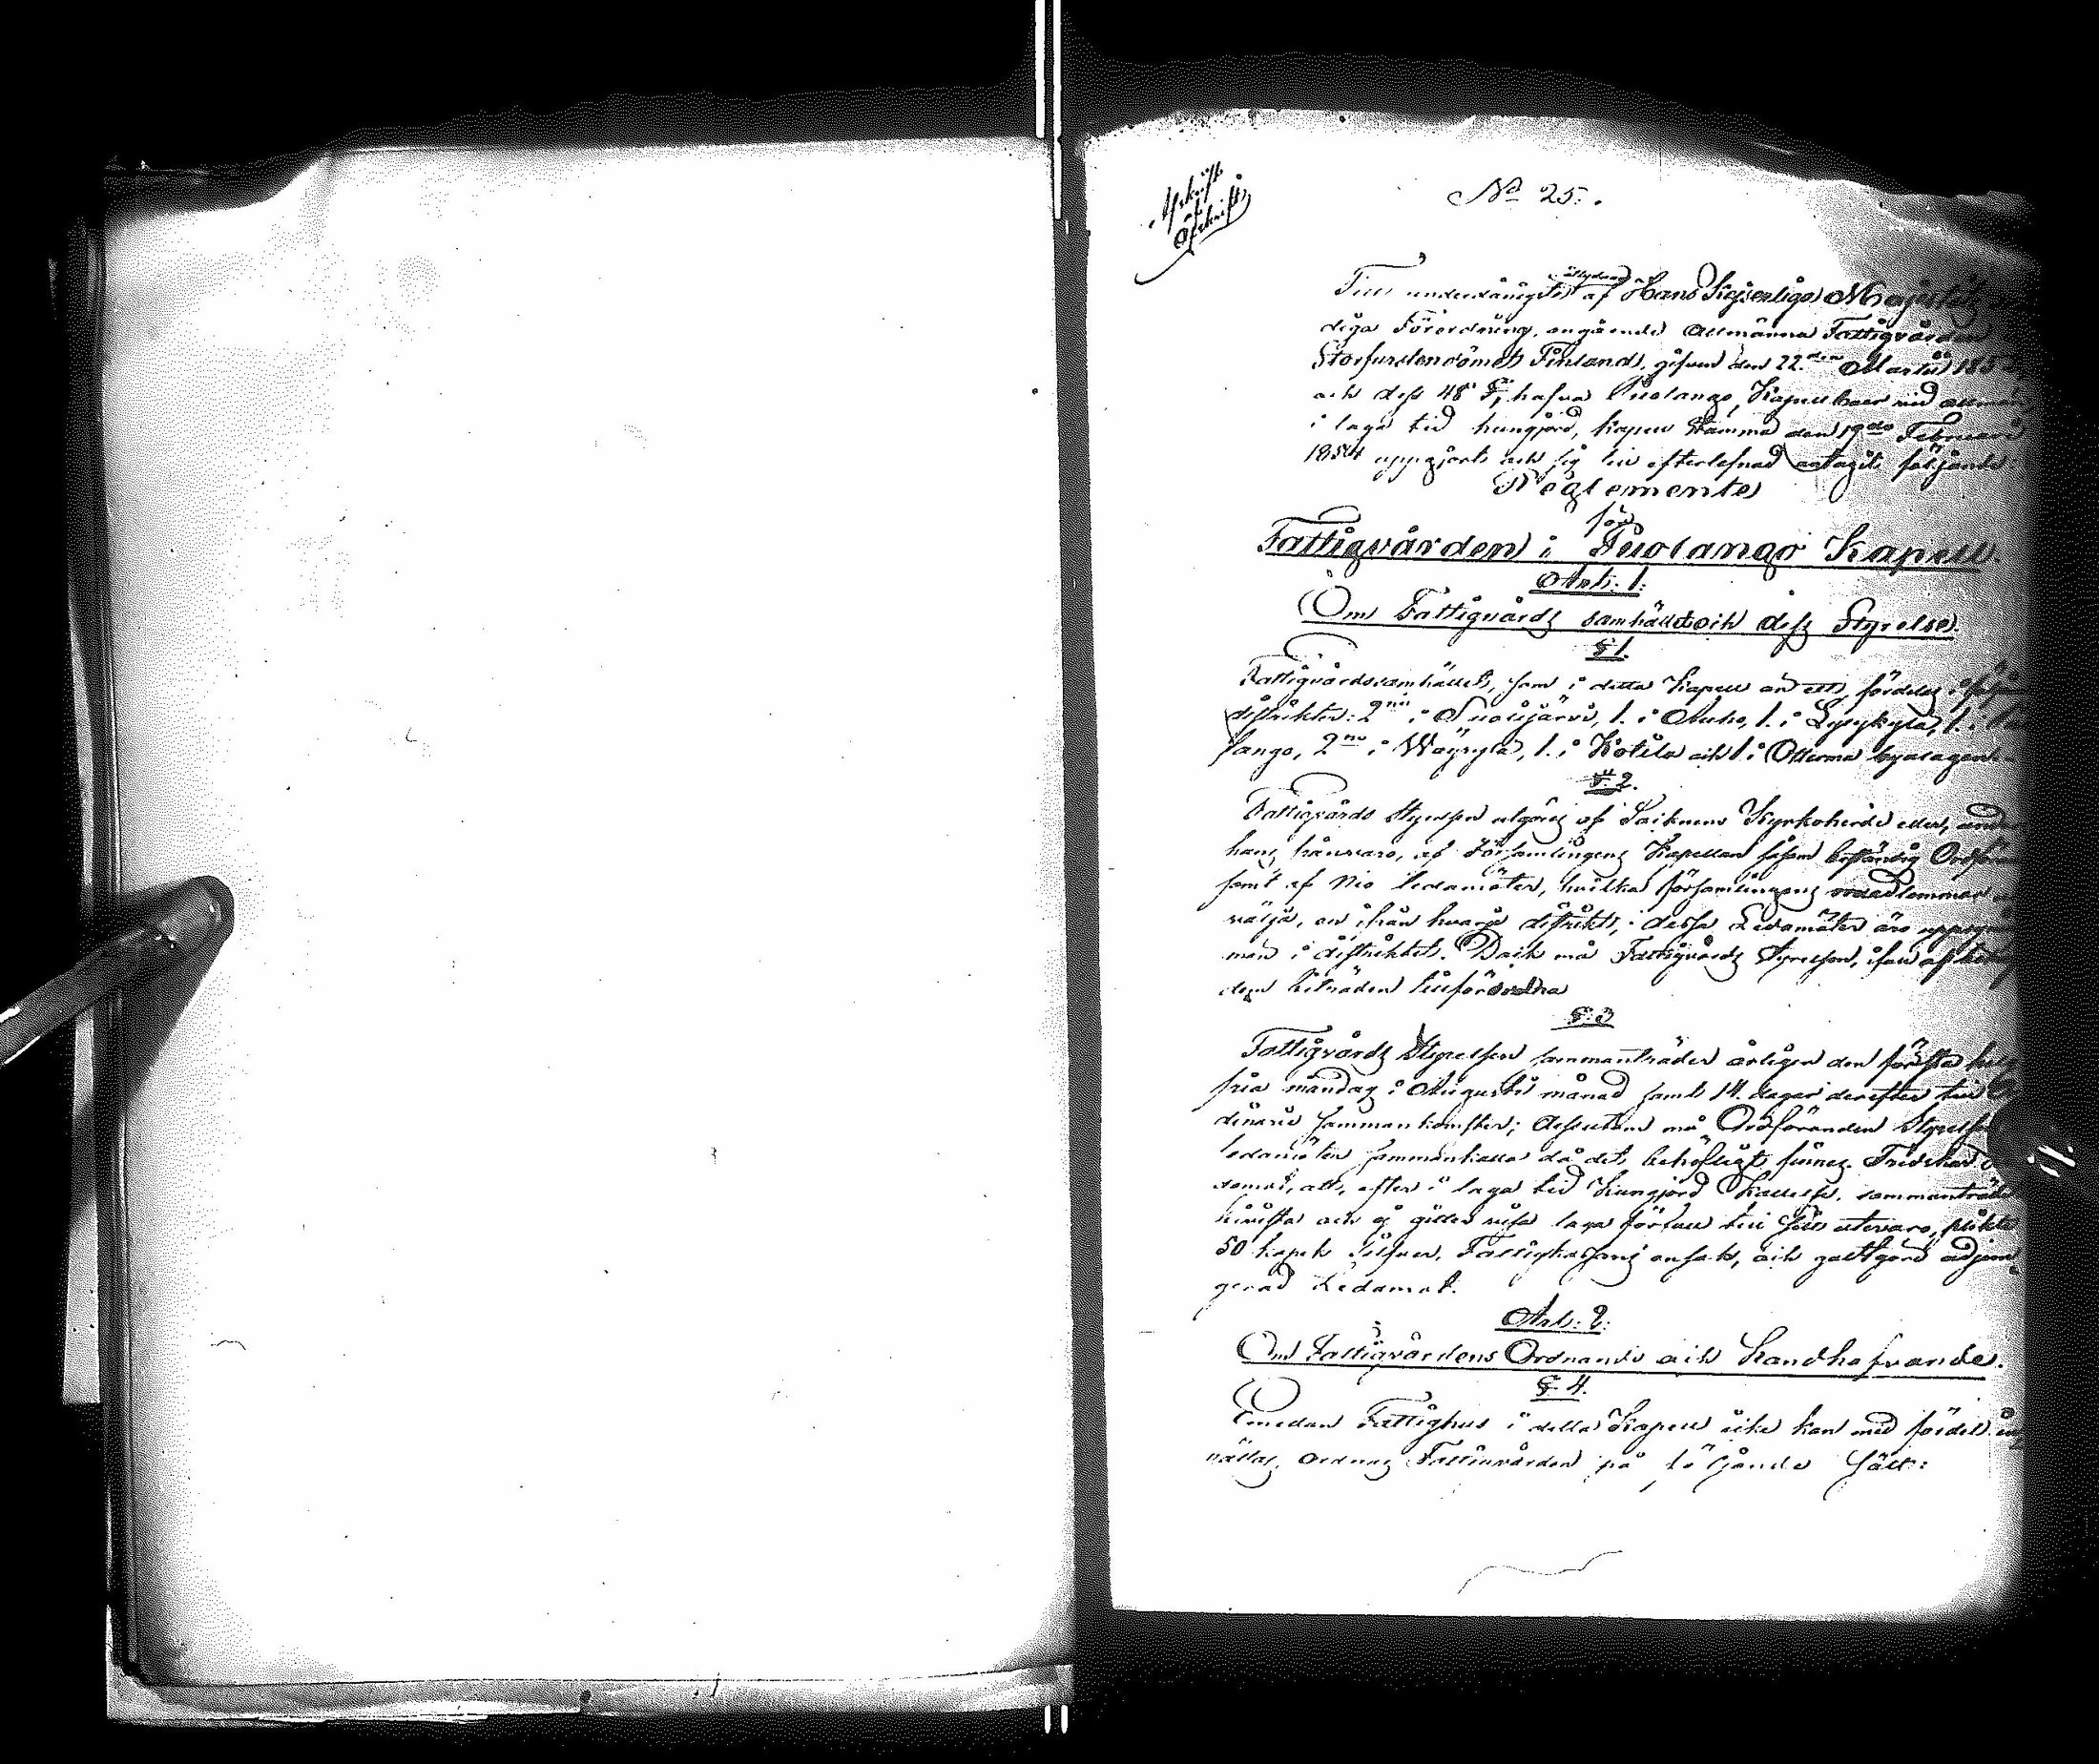 Afskrift
af
Afskrift
No 25.
Till underdånigst åtlydnad af Hans Kejserliga Majestäts
diga Förordning, angående Allmänna Fattigvården
Storfurstendömet Finland, gifven den 22.den Martii 185
och dess 48 §, hafva Puolango Kapellboer vid allmän
i laga tid kungjord, Kapell Stämma den 19de Februari
1854 uppgjort och sig till efterlefnad antagit följande
Reglemente
för
Fattigvården i Puolango Kapell.
Art: 1:
Om Fattigvårds samhället och dess Styrelse.
§ 1.
Fattigvårdssamhället, som i detta Kapell är ett, fördelas i
distrikter: 2ne i Suolijärvi, 1. i Auho, 1. i Lylykylä, 1. i
lango, 2ne i Wäyrylä, 1. i Kotila och 1 i Otterma byalagen
§ 2.
Fattigvårds Styrelsen utgöres af Socknens Kyrkoherde eller, under
hans frånvaro, af Församlingens Kapellan såsom beständig Ordföran
samt af Nio ledamöter, hvilka församlingens medlemmar
välja, en ifrån hvarje distrikt, dessa Ledamöter äro
män i distriktet. Dock må Fattigvårds Styrelsen,
dem biträden tillförordna
§ 3
Fattigvårds Styrelsen sammanträder årligen den första helg
fria måndag i Augusti månad samt 14. dagar derefter till
dinarie sammankomster; dessutom må Ordföranden Styrelsens
ledamöter sammankalla då det behöfligt finnes. Tredskar
damot, att, efter i laga tid Kungjord Kallelse, sammanträde
bevista och ej gitter visa laga förfall till sin utevaro, plikte
50 kopek Silfver, Fattigkassans ensak, och galtgörd adjun
gerad Ledamot.
Art: 2:
Om Fattigvårdens Ordnande och Handhafvande.
§ 4.
Emedan Fattighus i detta Kapell icke kan med fördel in
rättas, ordnas Fattigvården på följande sätt: